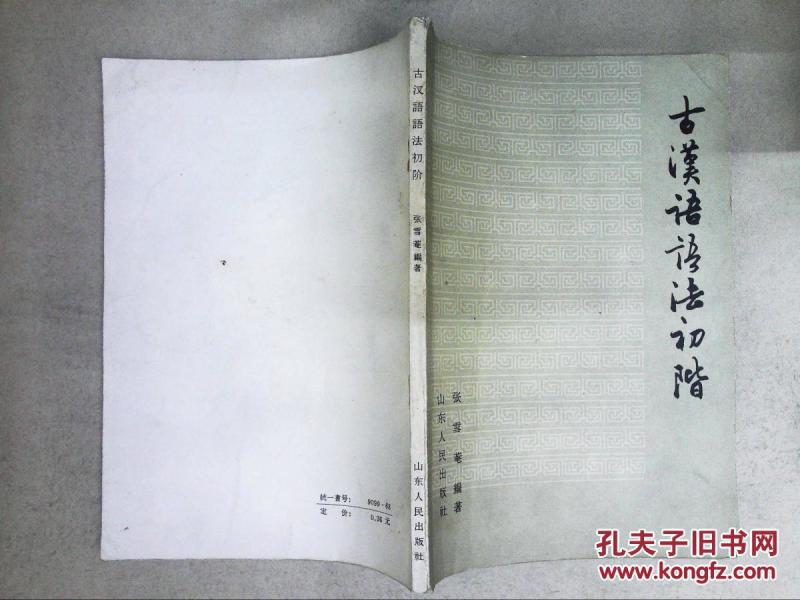 古漢語語法初階
张雪菴編著
山东人民出版社
古汉語語法初阶
张雪菴編著
山东人民出版社
統一書号: 9099·
定 价: 0.36 元
孔夫子旧书网
www.kongfz.com